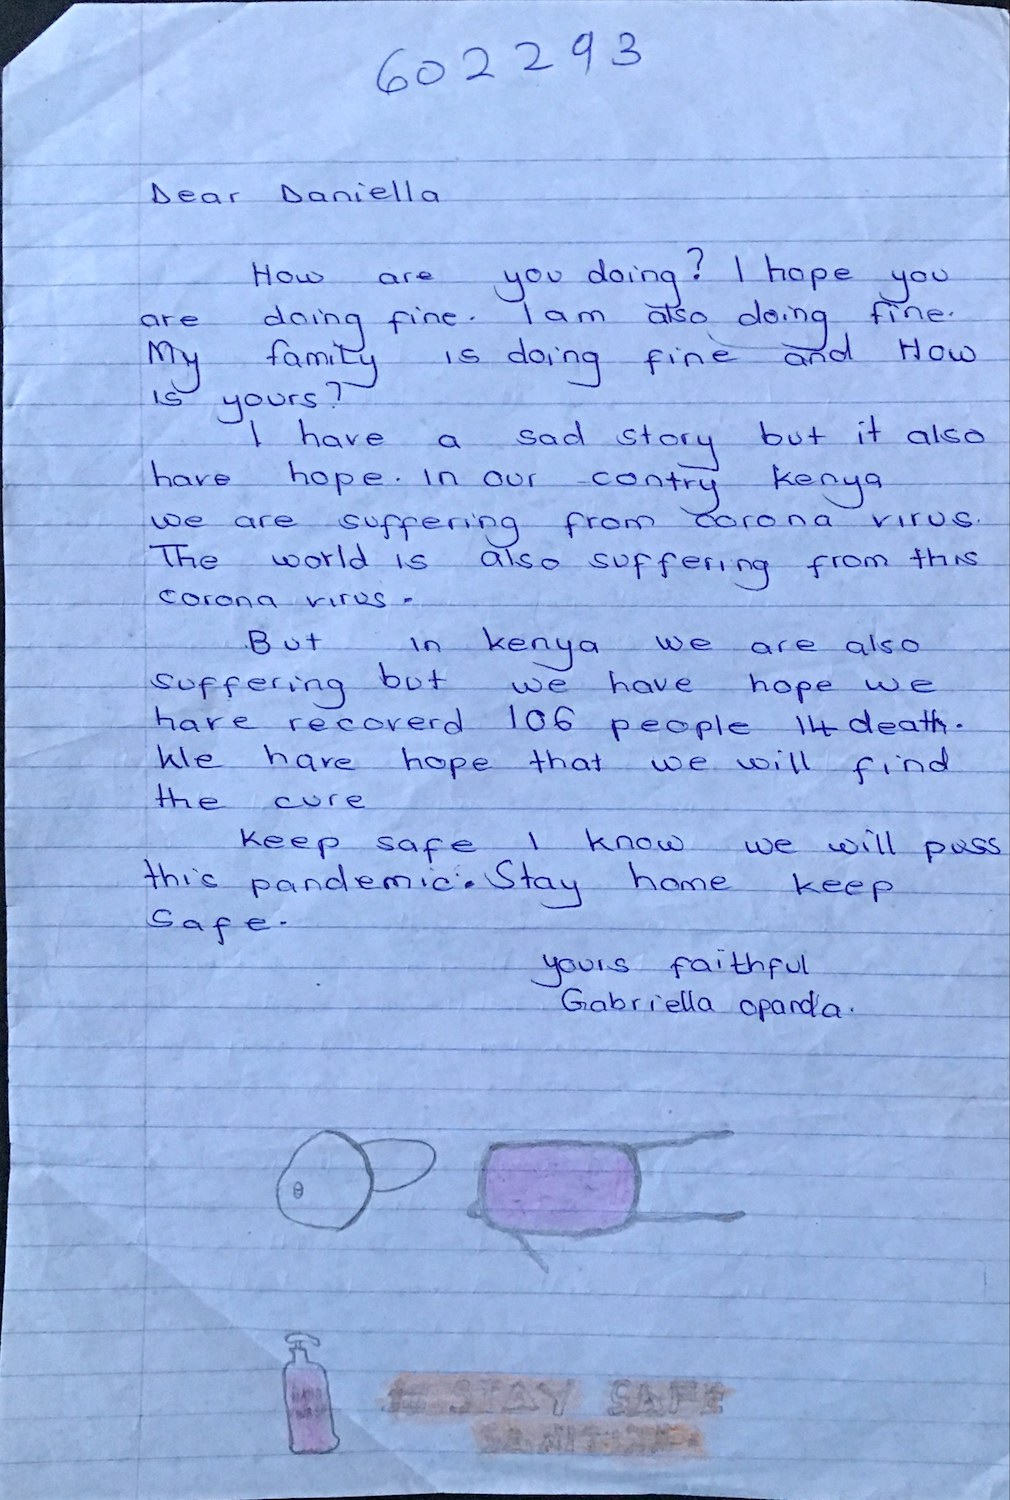 602293
Dear Daniella
How are you doing? I hope you
are doing fine. I am also doing fine.
My family is doing fine and How
is yours?
I have a sad story but it also
have hope. In our contry kenya
we are suffering from corona virus.
The world is also suffering from this
corona virus.
But in kenya we are also
suffering but we have hope we
have recoverd 106 people 14 death.
We have hope that we will find
the cure
Keep safe I know we will pass
this pandemic. Stay home keep
safe.
yours faithful
Gabriella opanda.
STAY SAFE